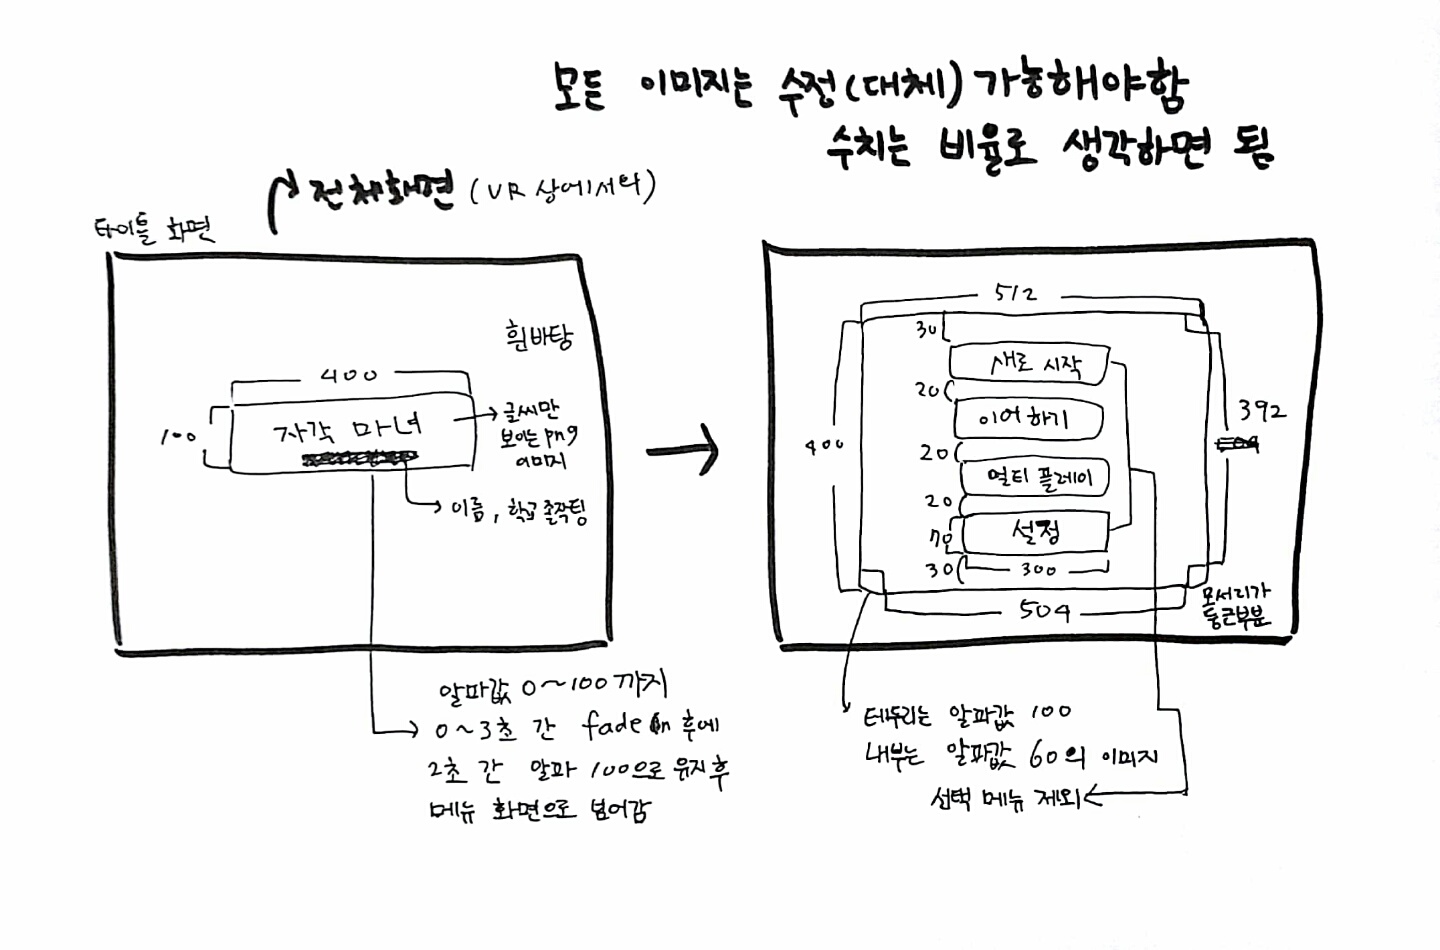 모든 이미지는 수정(대체)가능해야함
수치는 비율로 생각하면 됨
전체화면 (VR 상에서의)
타이틀 화면
흰바탕
400
100
자각 마녀
글씨만
보이는 png
이미지
이름, 학교 졸작팀
알파값 0~100 까지
0~3초 간 fade in 후에
2초 간 알파 100으로 유지후
메뉴 화면으로 넘어감
512
30
새로 시작
20
이어하기
400
392
20
멀티 플레이
20
70
설정
30
300
504
모서리가
둥근부분
테두리는 알파값 100
내부는 알파값 60의 이미지
선택 메뉴 제외